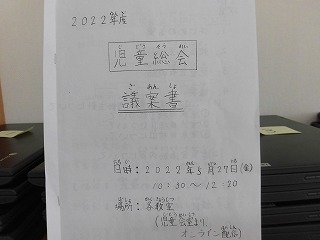 2022年度
じどうそうかい
児童総会
ぎあんしょ
議案書
日時：2022年5月27日(金)
10:30〜12:20
場所：各教室
(児童会室より、
オンライン配信)